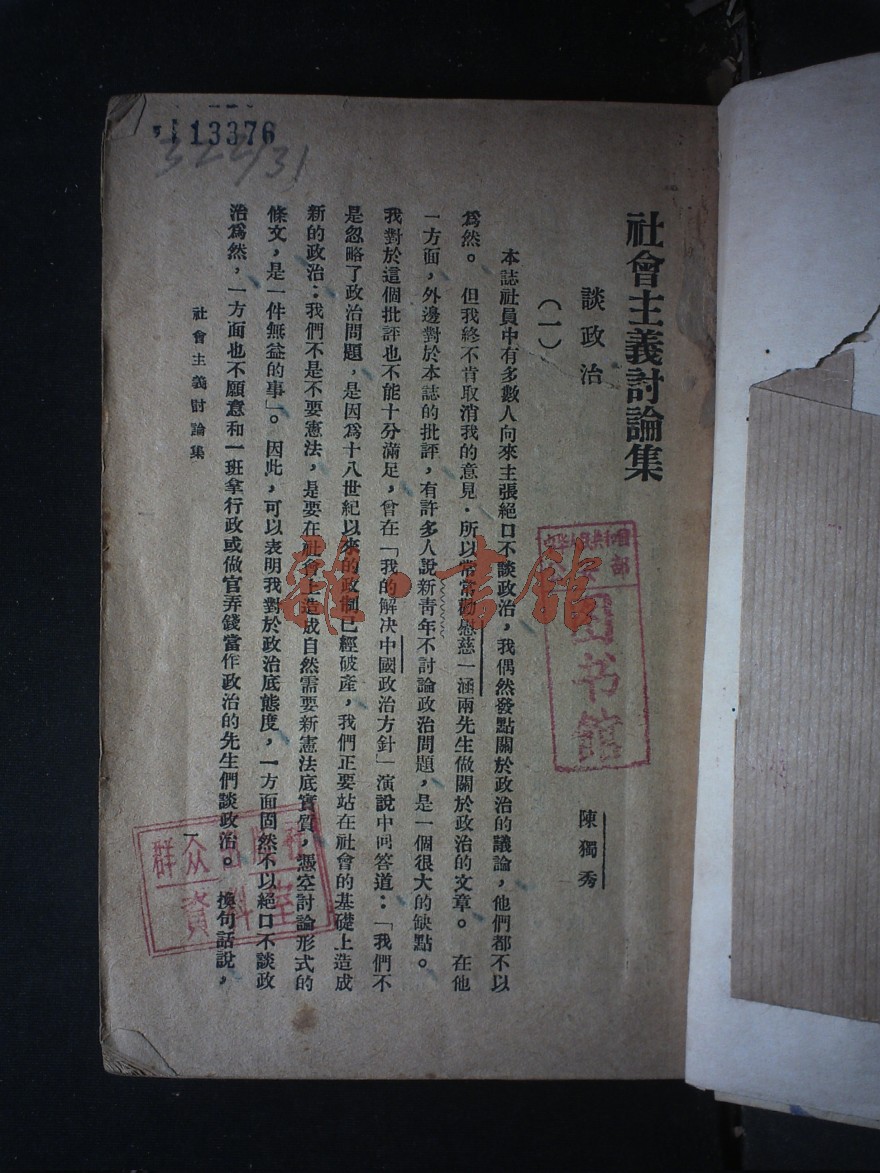 113376
322/31
社會主義討論集
談政治
陳獨秀
(一)
本誌社員中有多數人向來主張絕口不談政治,我偶然發點關於政治的議論,他們都不以
爲然。但我終不肯取消我的意見.所以常常勸慰慈一涵兩先生做關於政治的文章。在他
一方面,外邊對於本誌的批評,有許多人說新靑年不討論政治問題,是一個很大的缺點。
我對於這個批評也不能十分滿足,曾在「我的解决中國政治方針」演說中回答道:「我們不
是忽略了政治問題,是因爲十八世紀以來的政制已經破產,我們正要站在社會的基礎上造成
新的政治;我們不是不要憲法,是要在社會上造成自然需要新憲法底實質,憑空討論形式的
條文,是一件無益的事」。因此,可以表明我對於政治底態度,一方面固然不以絕口不談政
治爲然,一方面也不願意和一班拿行政或做官弄錢當作政治的先生們談政治。換句話說,
社會主義討論集
一
部
图书馆
群众出版社
資料室
雜·書館